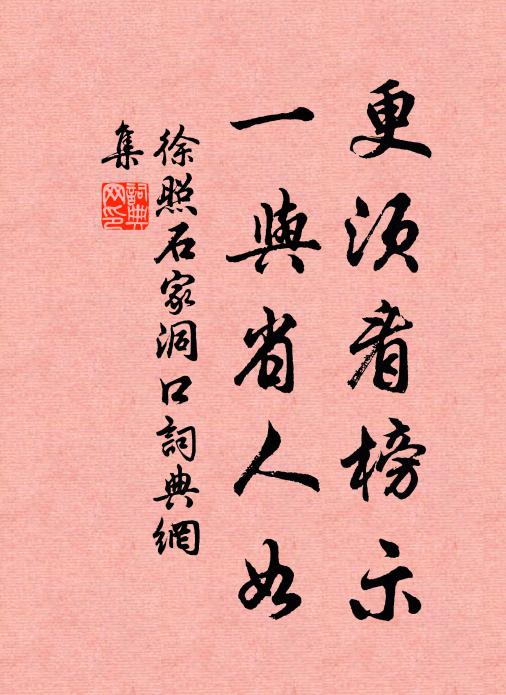 更須看榜示
一與省人如
徐照石家洞口詞典網
集
詞典网印